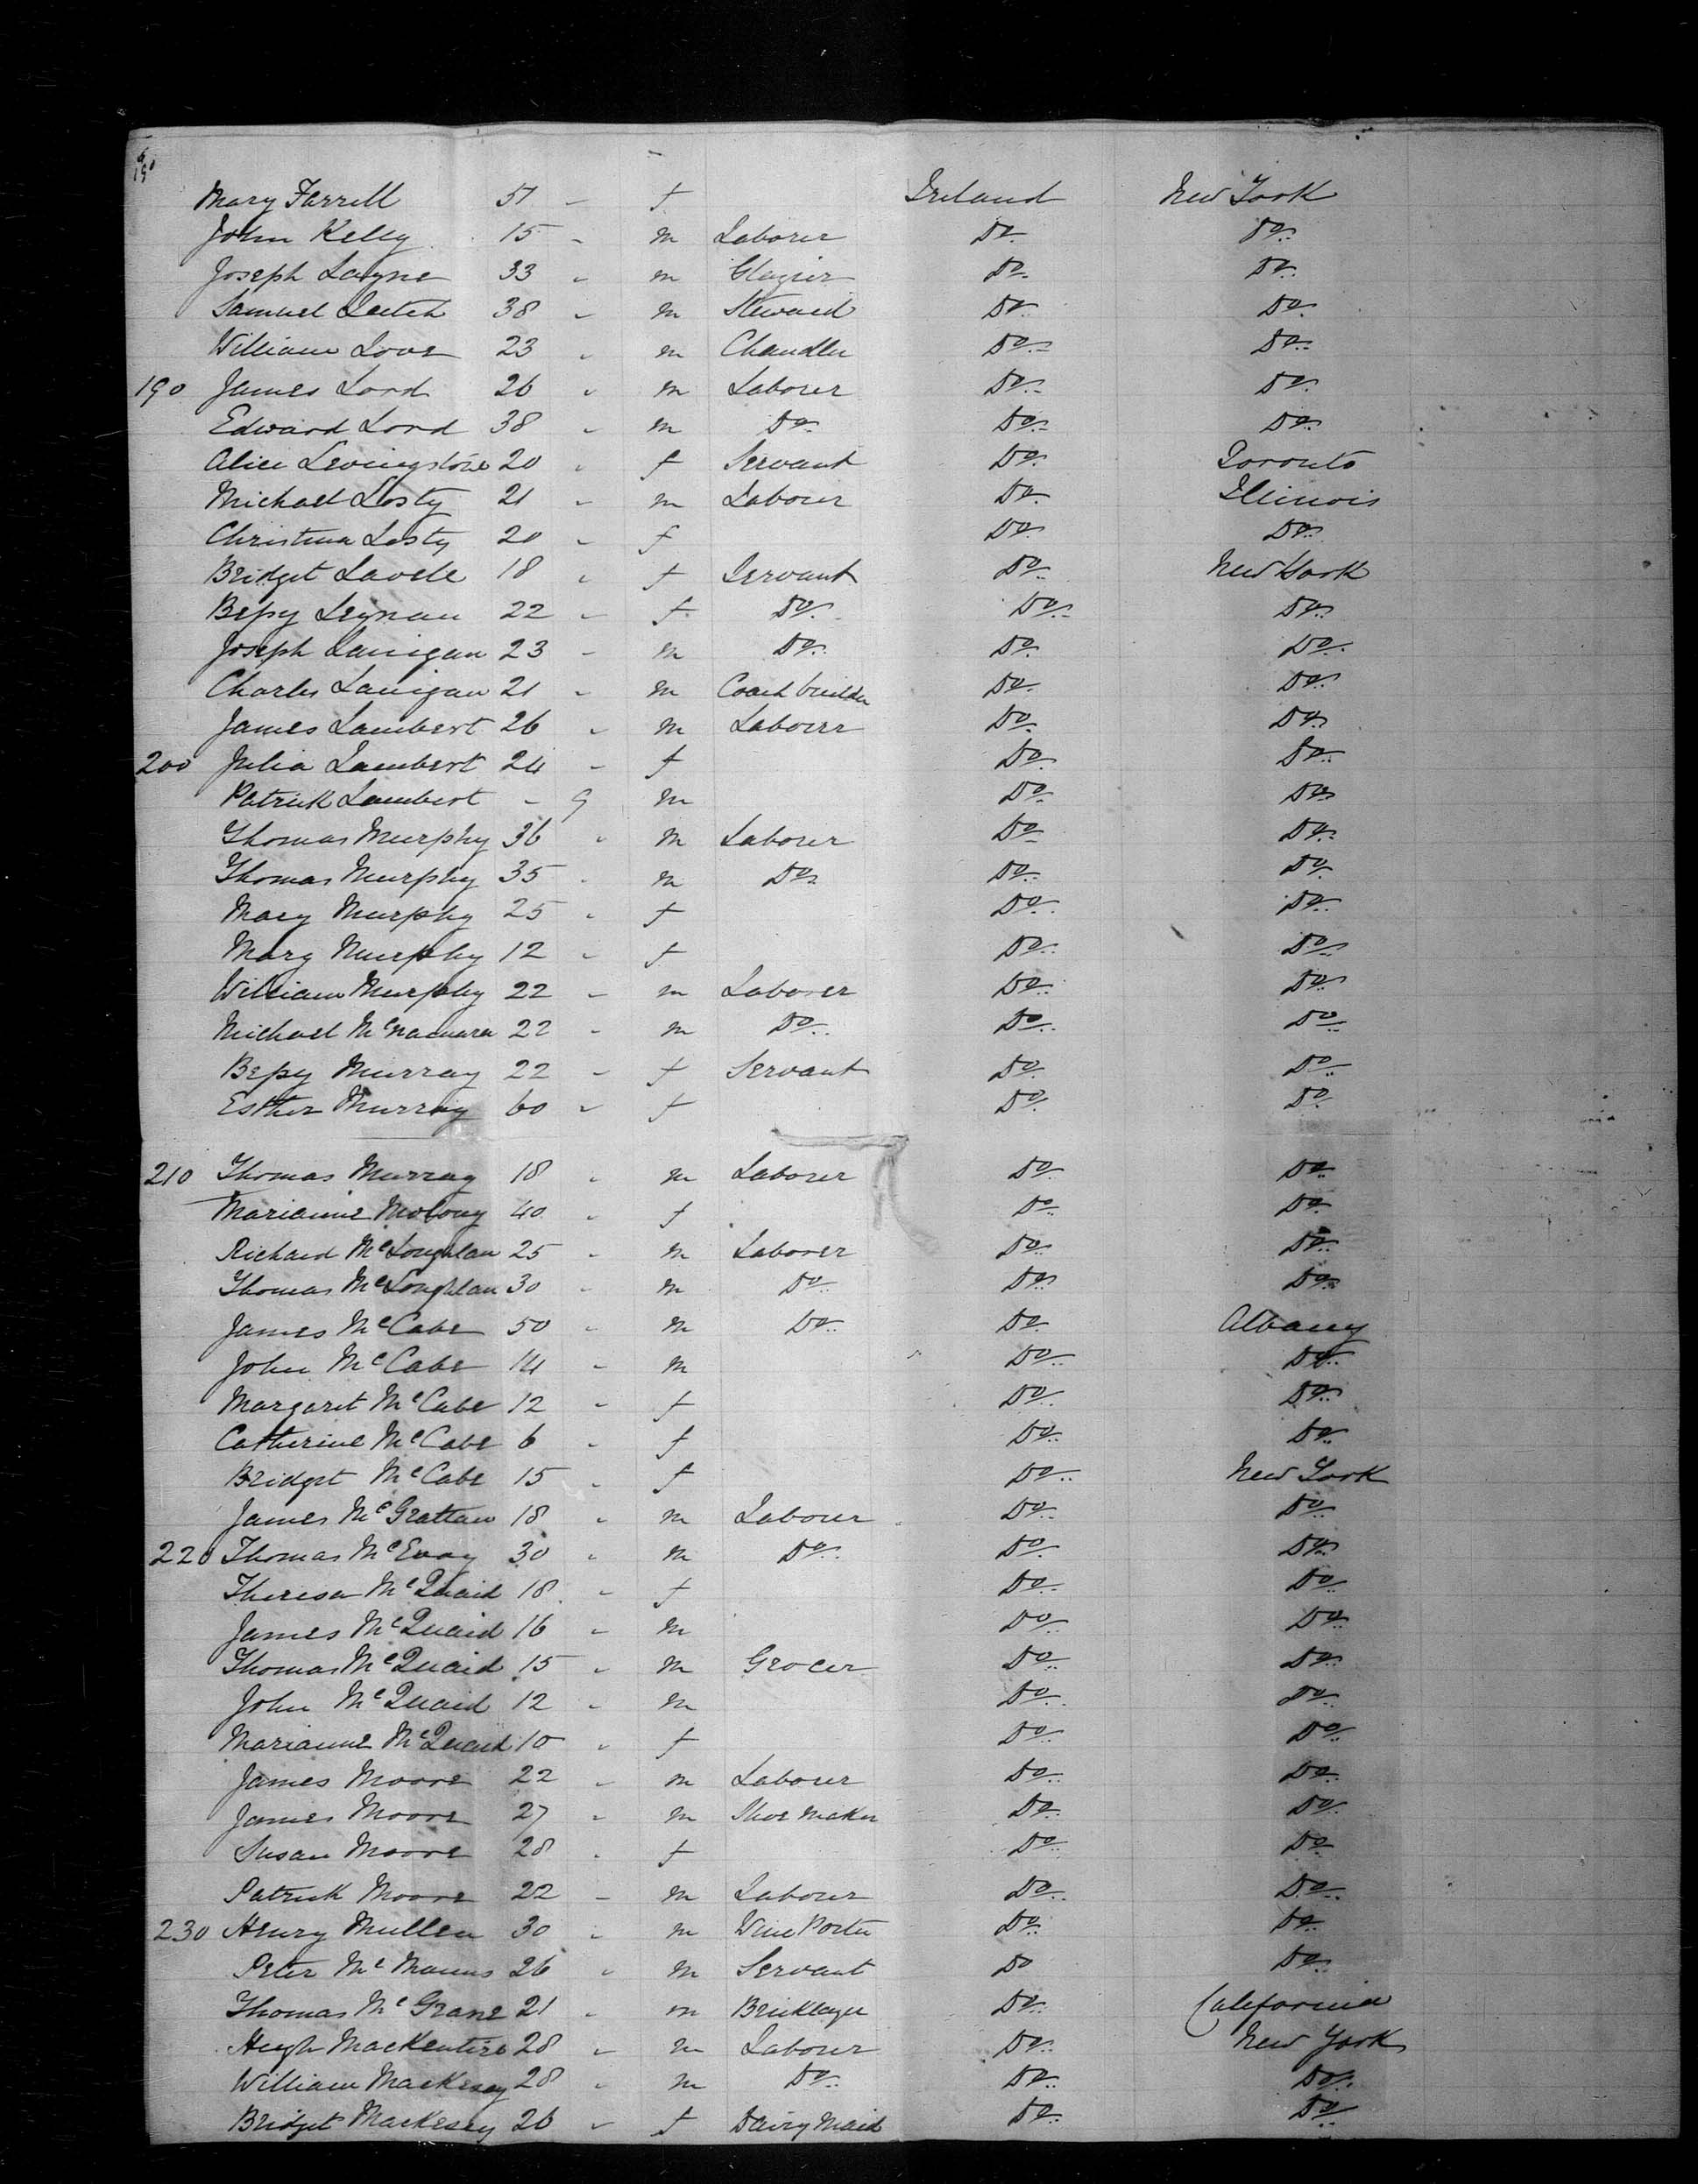 Mary Farrell 51 - f Ireland New York
John Kelly 15 - m Laborer Do Do
Joseph Layne 33 - m Glazier Do Do
Samuel Leetch 38 - m Steward Do Do
William Love 23 - m Chandler Do Do
190 James Lord 26 - m Laborer Do Do
Edward Lord 38 - m Do Do Do
Alice Levingstone 20 - f Servant Do Toronto
Michael Losty 21 - m Laborer Do Illinois
Christina Losty 20 - f Do Do
Bridget Lavele 18 - f Servant Do New York
Bessy Leynan 22 - f Do Do Do
Joseph Lanigan 23 - m Do Do Do
Charles Lanigan 21 - m Coach builder Do Do
James Lambert 26 - m Laborer Do Do
200 Julia Lambert 24 - f Do Do
Patrick Lambert - 9 m Do Do
Thomas Murphy 36 - m Laborer Do Do
Thomas Murphy 35 - m Do Do Do
Mary Murphy 25 - f Do Do
Mary Murphy 12 - f Do Do
William Murphy 22 - m Laborer Do Do
Michael McNamara 22 - m Do Do Do
Bessy Murray 22 - f Servant Do Do
Esther Murray 60 - f Do Do
210 Thomas Murray 18 - m Laborer Do Do
Marianne Molony 40 - f Do Do
Richard McLoughlan 25 - m Laborer Do Do
Thomas McLoughlan 30 - m Do Do Do
James McCabe 50 - m Do Do Albany
John McCabe 14 - m Do Do
Margaret McCabe 12 - f Do Do
Catherine McCabe 6 - f Do Do
Bridget McCabe 15 - f Do New York
James McGrattan 18 - m Laborer Do Do
220 Thomas McEvoy 30 - m Do Do Do
Theresa McQuaid 18 - f Do Do
James McQuaid 16 - m Do Do
Thomas McQuaid 15 - m Grocer Do Do
John McQuaid 12 - m Do Do
Marianne McQuaid 10 - f Do Do
James Moore 22 - m Laborer Do Do
James Moore 27 - m Shoe maker Do Do
Susan Moore 28 - f Do Do
Patrick Moore 22 - m Laborer Do Do
230 Henry Mullen 30 - m Wine Porter Do Do
Peter McManus 26 - m Servant Do Do
Thomas McGrane 21 - m Bricklayer Do California
Hugh Mackentire 28 - m Laborer Do New York
William Mackesey 28 - m Do Do Do
Bridget Mackesey 26 - f Dairy Maid Do Do